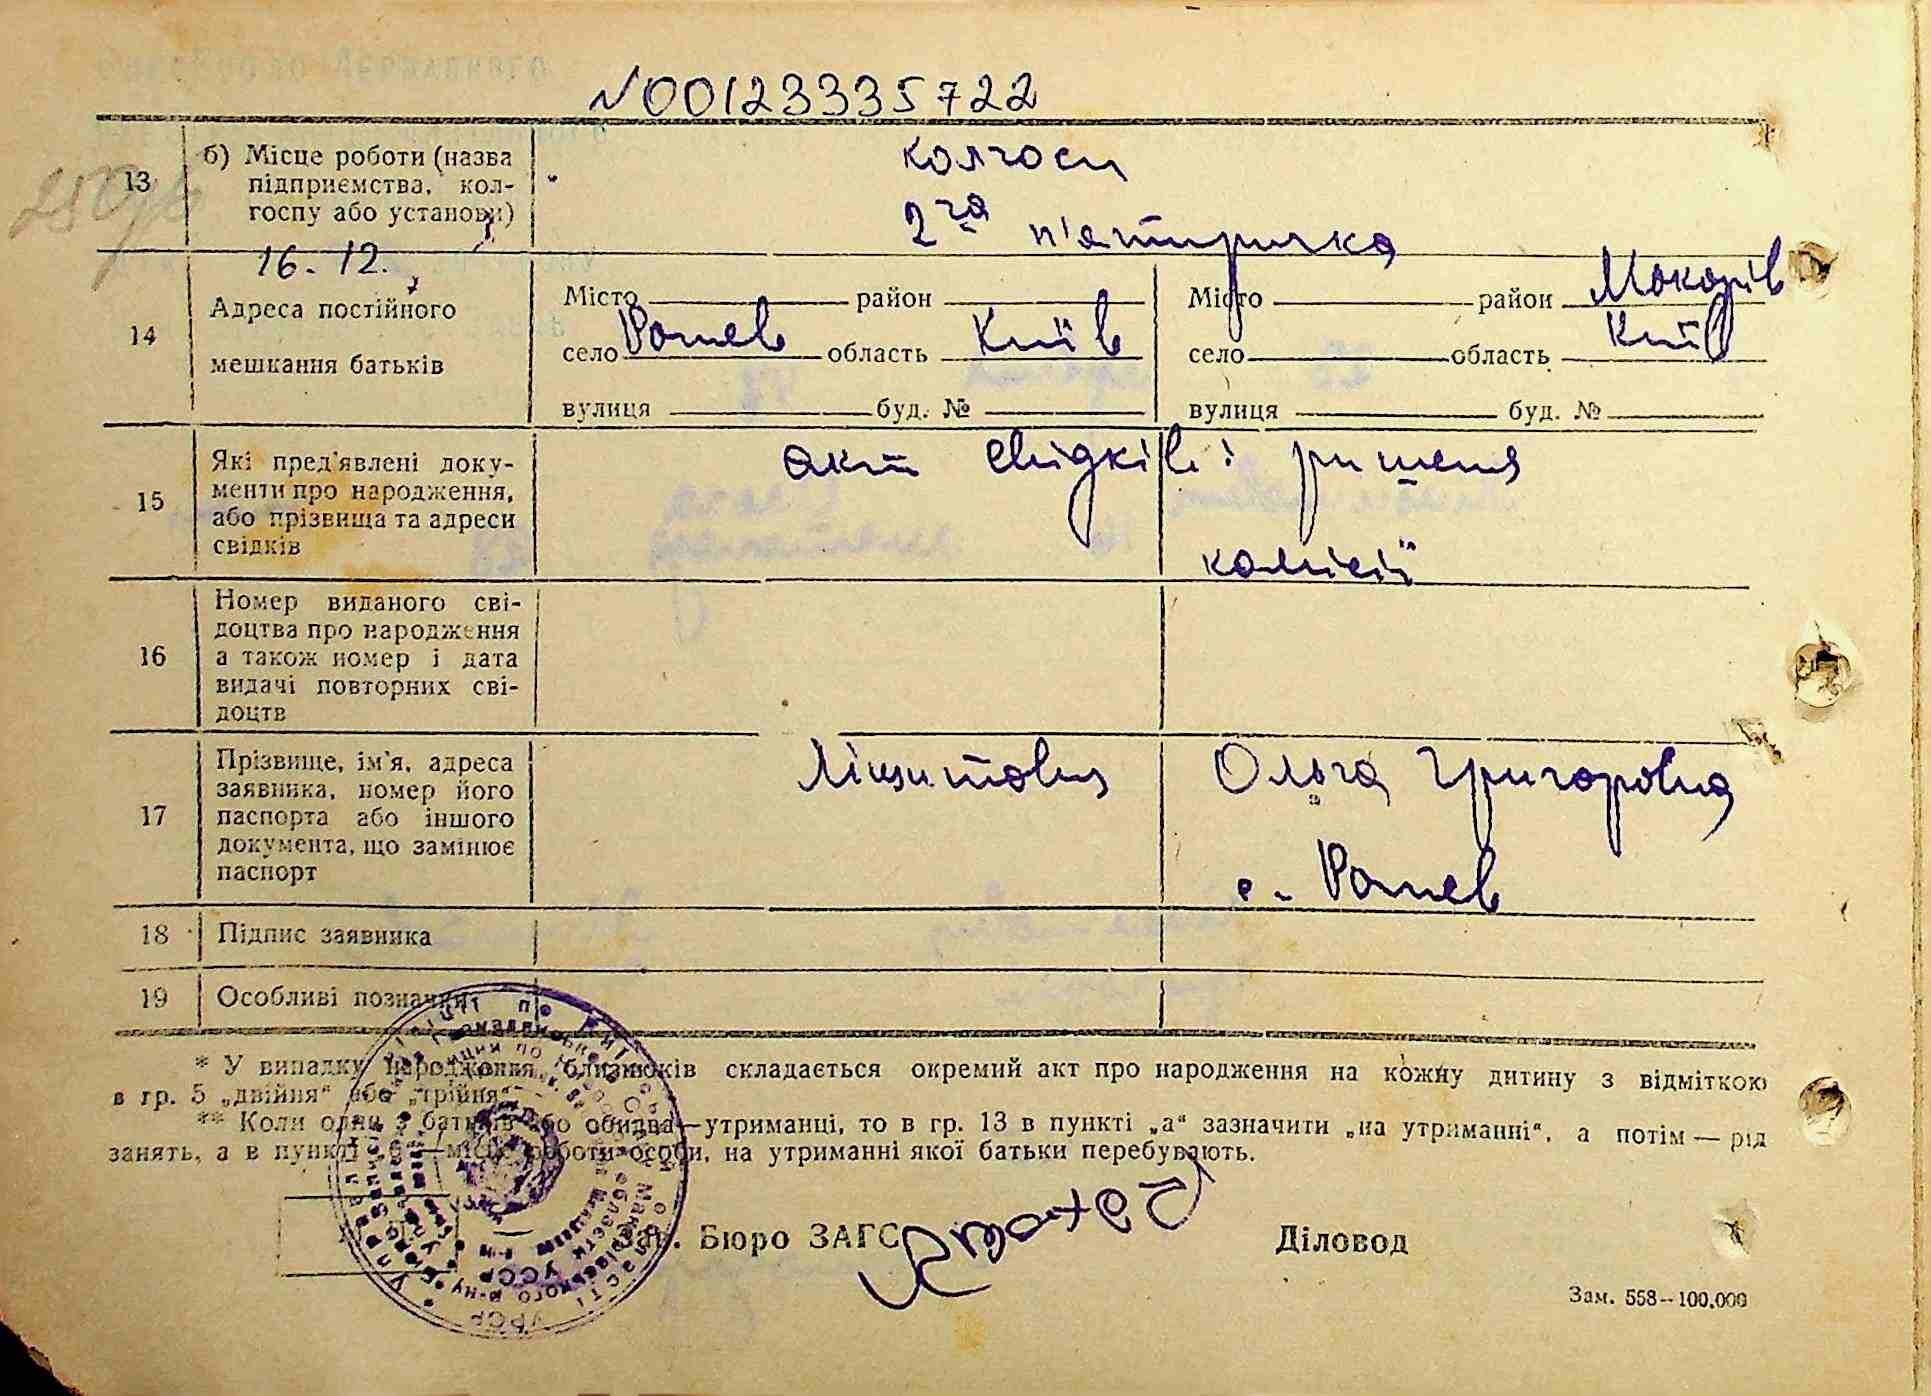 N00123335722
13 б) Місце роботи (назва
підприємства, кол-
госпу або установи)
колгосп
2га п'ятирічка
16. 12.
14 Адреса постійного
мешкання батьків
Місто район Місто район Макарів
село Рожев область Київ село область Київ
вулиця буд. № вулиця буд. №
15 Які пред'явлені доку-
менти про народження,
або прізвища та адреси
свідків
акт свідків і ришення
комісії
16 Номер виданого сві-
доцтва про народження
а також номер і дата
видачі повторних сві-
доцтв
17 Прізвище, ім'я, адреса
заявника, номер його
паспорта або іншого
документа, що замінює
паспорт
Ольга Григоровна
с. Рожев
18 Підпис заявника
19 Особливі позначки
* У випадку народження близнюків складається окремий акт про народження на кожну дитину з відміткою
в гр. 5 „двійня“ або „трійня“.
** Коли один з батьків або обидва—утриманці, то в гр. 13 в пункті „а“ зазначити „на утриманні“, а потім — рід
занять, а в пункті „б“—місце роботи особи, на утриманні якої батьки перебувають.
Зав. Бюро ЗАГС Діловод
Зам. 558—100.000